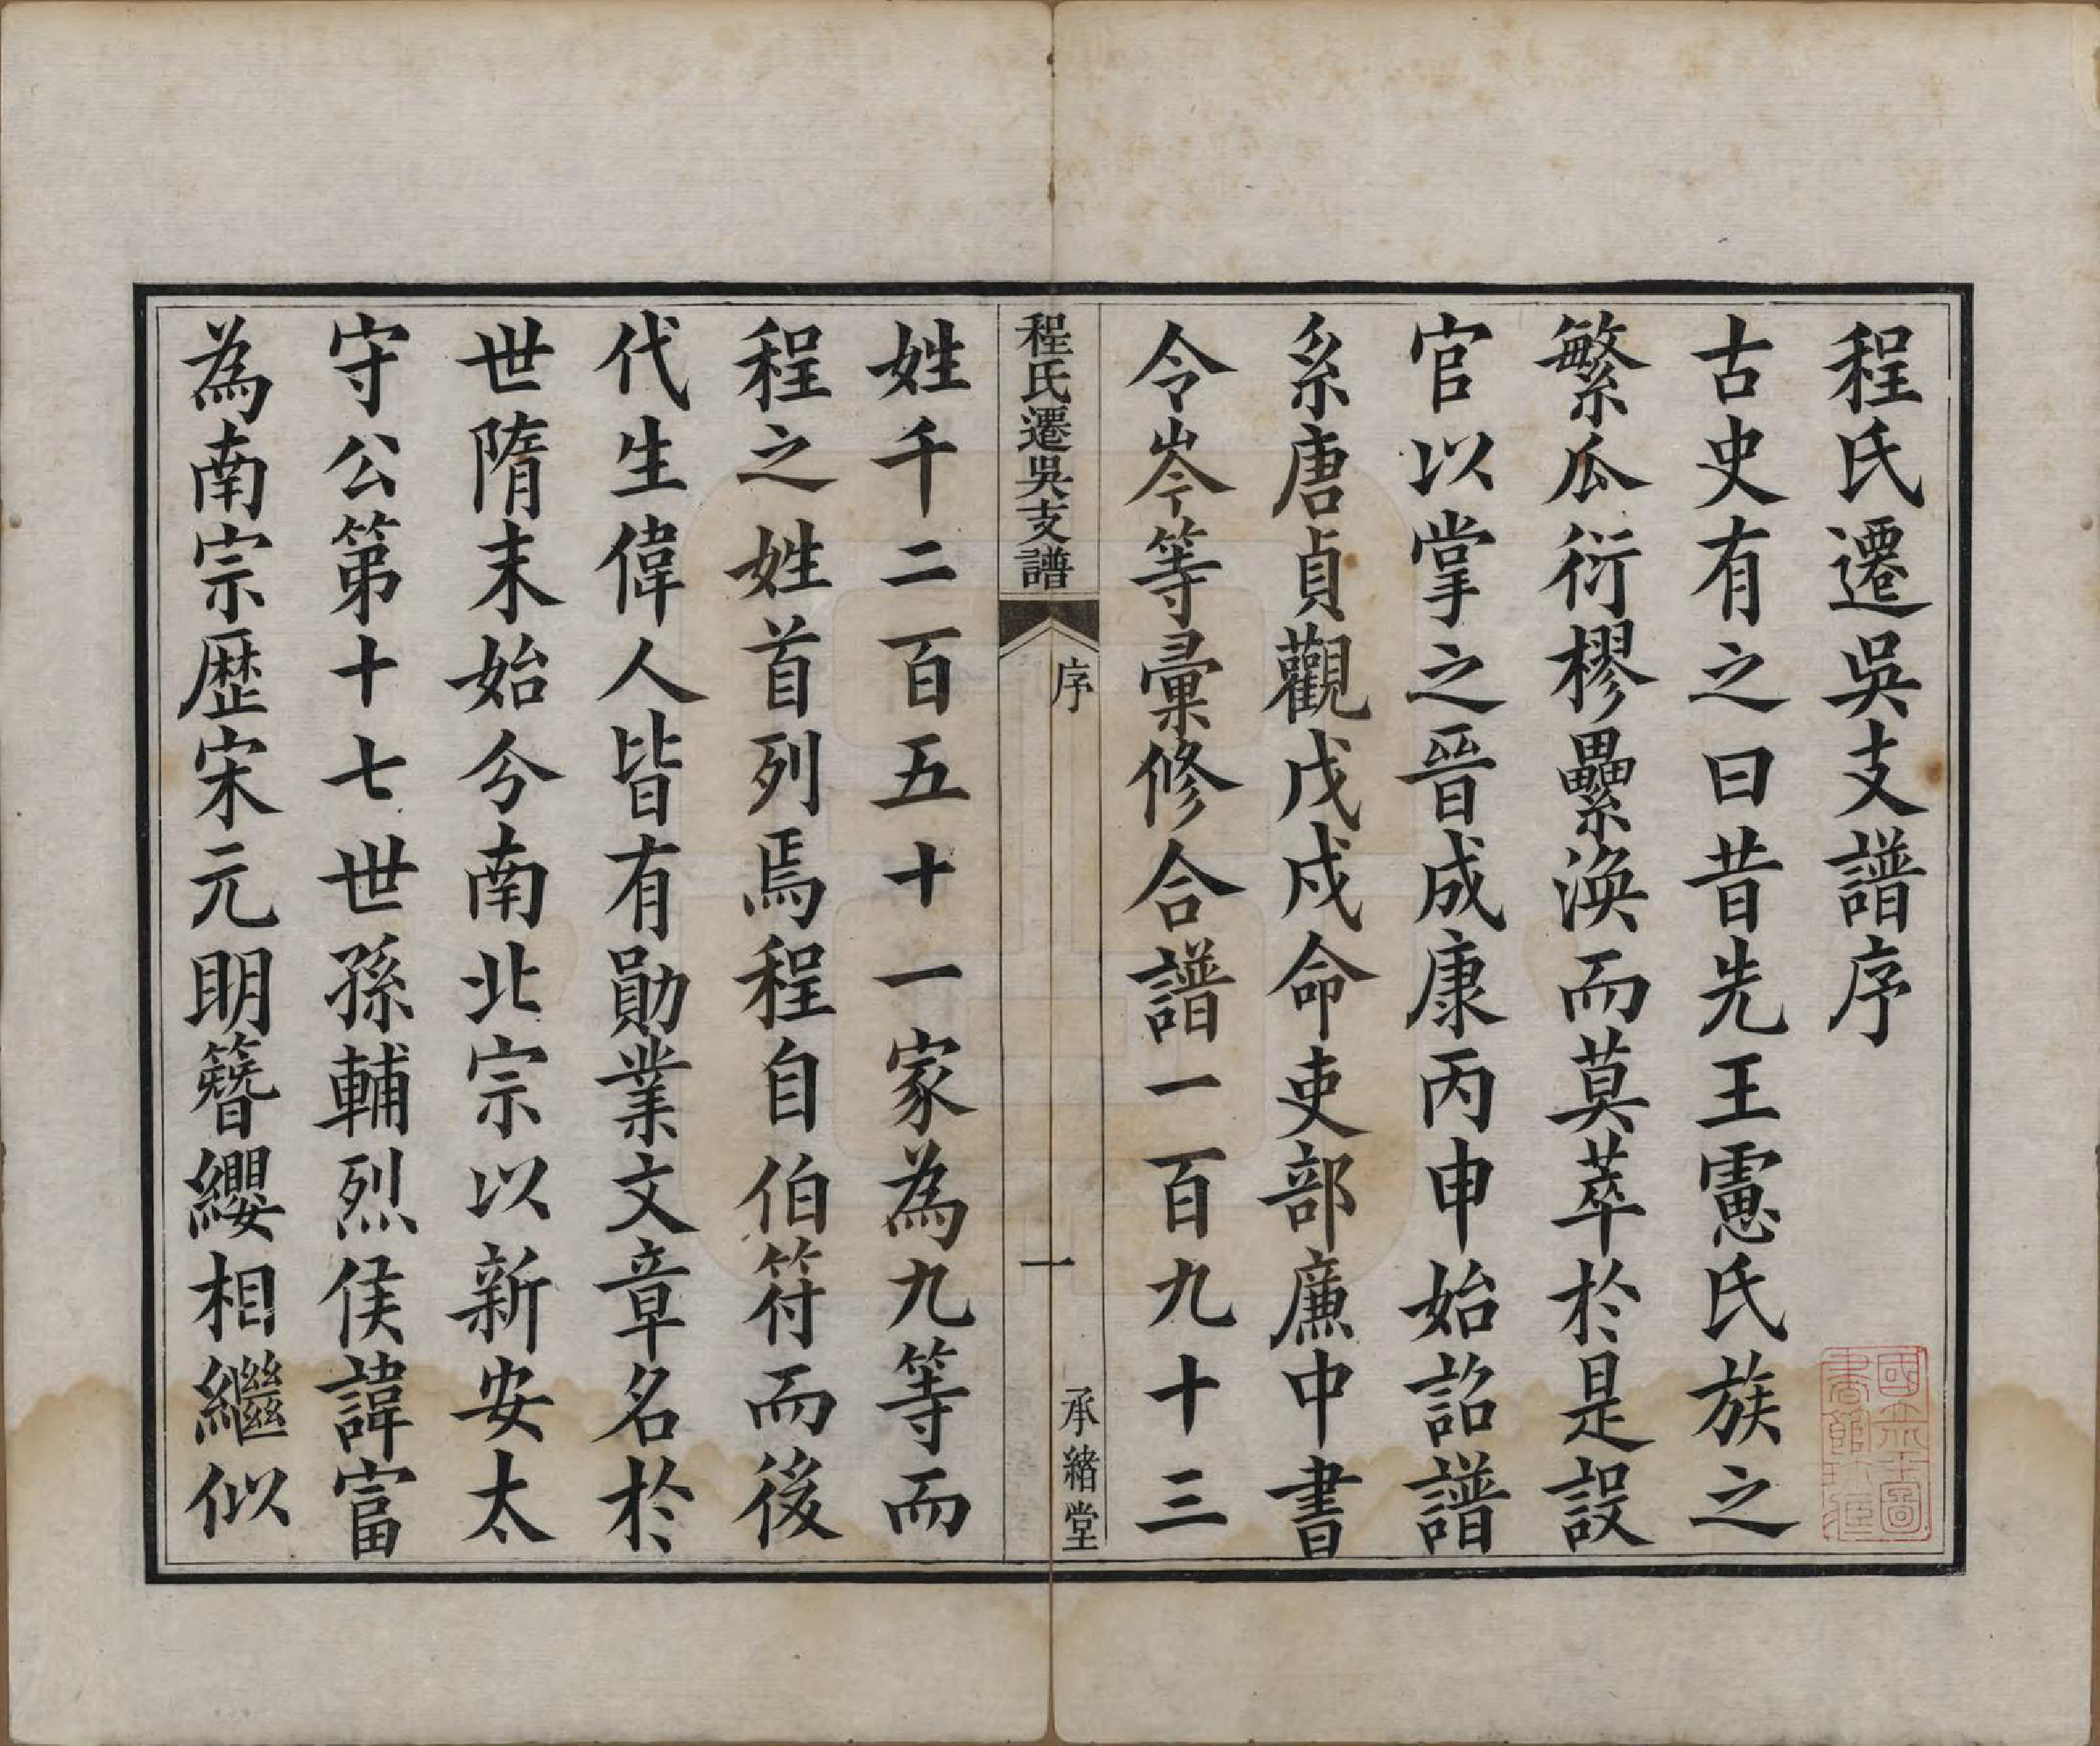 程氏遷吳支譜序
古史有之曰昔先王慮氏族之
繁瓜衍樛纍渙而莫萃於是設
官以掌之晉成康丙申始詔譜
系唐貞觀戊戌命吏部廉中書
令岑等彙修合譜一百九十三
程氏遷吳支譜
序
一
承緒堂
姓千二百五十一家為九等而
程之姓首列焉程自伯符而後
代生偉人皆有勛業文章名於
世隋末始分南北宗以新安太
守公第十七世孫輔烈侯諱富
為南宗歷宋元明簪纓相繼似
國立北平圖
書館珍藏